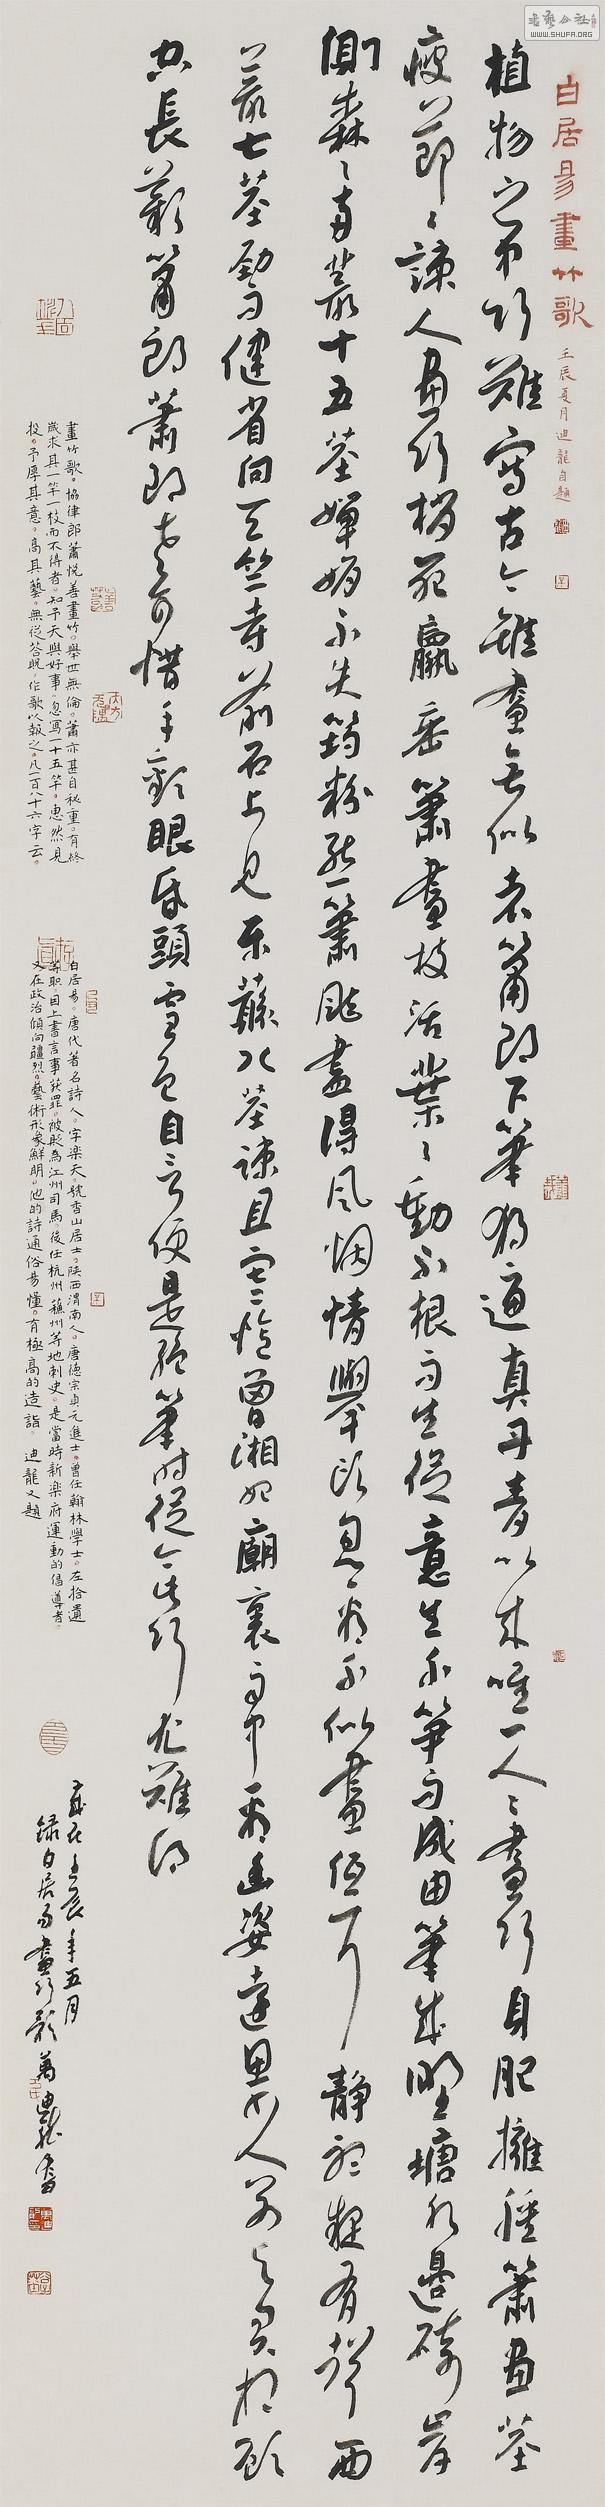 白居易畫竹歌
壬辰夏月迪龍自題
植物之中竹難寫古今雖畫無似者蕭郎下筆獨逼真丹青以來唯一人人畫竹身肥擁腫蕭畫莖
瘦節節竦人畫竹梢死羸垂蕭畫枝活葉葉動不根而生從意生不笋而成由筆成野塘水邊碕岸
側森森兩叢十五莖嬋娟不失筠粉態蕭颯盡得風烟情舉頭忽看不似畫低耳静聽疑有聲西
叢七莖勁而健省向天竺寺前石上見東叢八莖疎且寒憶曾湘妃廟裏雨中看幽姿遠思少人别與君相顧
空長歎蕭郎蕭郎老可惜手顫眼昏頭雪色自言便是絶筆時從今此竹尤難得
畫竹歌。協律郎蕭悦善畫竹。舉世無倫。蕭亦甚自秘重。有終
歲求其一竿一枝而不得者。知予天與好事。忽寫一十五竿。惠然見
投。予厚其意。高其藝。無從答貺。作歌以報之。凡一百八十六字云。
白居易。唐代著名詩人。字樂天。號香山居士。陝西渭南人。唐德宗貞元進士。曾任翰林學士。左拾遺
等職。因上書言事获罪。被貶為江州司馬。後任杭州蘇州等地刺史。是當時新樂府運動的倡導者。
又在政治傾向疆烈。藝術形象鮮明。他的詩通俗易懂。有極高的造詣。迪龍又題
歲在壬辰年五月
録白居易畫竹歌萬迪龍書
書藝公社
WWW.SHUFA.ORG